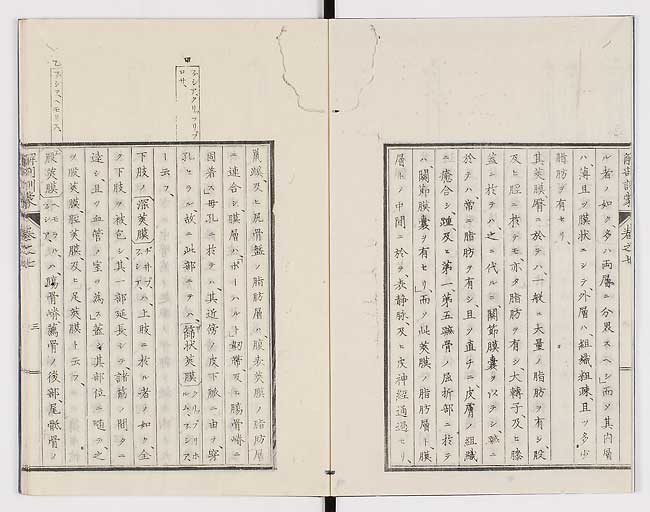 解剖訓蒙 巻之廿
ル者ノ如ク多ハ両層ニ分界スヘシ而ソ其内層
ハ薄且ツ膜状ニシテ外層ハ組織粗疎且ツ多少
脂肪ヲ有セリ
其莢膜臀ニ於テハ一般ニ大量ノ脂肪ヲ有シ股
及ヒ脛ニ於テモ亦タ脂肪ヲ有シ大轉子及ヒ膝
蓋ニ於テハ之ニ代ルニ関節膜嚢ヲ以テシ
於テハ常ニ脂肪ヲ有シ且ツ直チニ皮膚ノ組織
ニ癒合シ踵及ヒ第一第五骨ノ屈折部ニ於テ
ハ関節膜嚢ヲ有セリ而ソ此莢膜ノ脂肪層ト膜
層トノ中間ニ於テ表静脉及ヒ皮神経通過セリ
鼠蹊及ヒ尻骨盤ノ脂肪層ハ腹表莢膜ノ脂肪層
ニ連合シ膜層ハポーハルト靱帯及ヒ膓骨嵴ニ
固着ス毋孔ニ於テハ其近傍ノ皮下脈ニ由テ穿
孔セラル故ニ此部ニテハ篩状莢膜クリブリホルム、フシア
ト云フ
ファシア、クリッリブロサ、
下肢ノ深莢膜ヂープ、フシア、ハ上肢ニ於ル者ノ如ク全
ク下肢ヲ被包シ其一部延長シテ諸筋ノ間タニ
達シ且ツ血管ノ室ヲ為ス蓋シ其部位ニ随テ之
ヲ股莢膜脛莢膜及ヒ足莢膜ト云フ
乙 ファシア、ヘモリス、
股莢膜ヘモラル、フシア、ハ膓骨嵴薦骨ノ後部尾骶骨ノ
解剖訓蒙 巻之廿 三